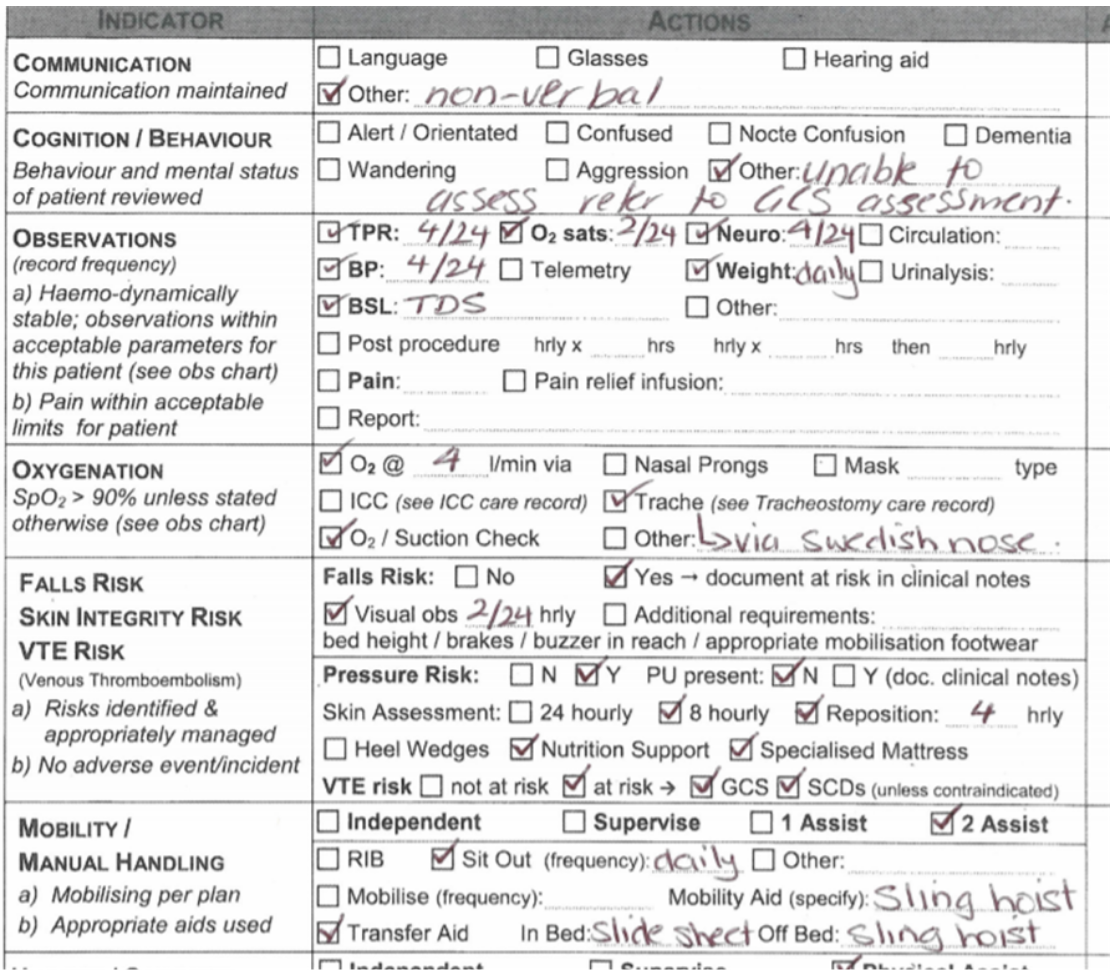 INDICATOR ACTIONS A
COMMUNICATION
Communication maintained
☐ Language ☐ Glasses ☐ Hearing aid
☑ Other: non-verbal
COGNITION / BEHAVIOUR
Behaviour and mental status
of patient reviewed
☐ Alert / Orientated ☐ Confused ☐ Nocte Confusion ☐ Dementia
☐ Wandering ☐ Aggression ☑ Other: unable to
assess refer to GCS assessment.
OBSERVATIONS
(record frequency)
a) Haemo-dynamically
stable; observations within
acceptable parameters for
this patient (see obs chart)
b) Pain within acceptable
limits for patient
☑ TPR: 4/24 ☑ O₂ sats: 2/24 ☑ Neuro: 4/24 ☐ Circulation:
☑ BP: 4/24 ☐ Telemetry ☑ Weight: daily ☐ Urinalysis:
☑ BSL: TDS ☐ Other:
☐ Post procedure hrly x hrs hrly x hrs then hrly
☐ Pain: ☐ Pain relief infusion:
☐ Report:
OXYGENATION
SpO₂ > 90% unless stated
otherwise (see obs chart)
☑ O₂ @ 4 l/min via ☐ Nasal Prongs ☐ Mask type
☐ ICC (see ICC care record) ☑ Trache (see Tracheostomy care record)
☑ O₂ / Suction Check ☐ Other: ↳ via swedish nose.
FALLS RISK
SKIN INTEGRITY RISK
VTE RISK
(Venous Thromboembolism)
a) Risks identified &
appropriately managed
b) No adverse event/incident
Falls Risk: ☐ No ☑ Yes → document at risk in clinical notes
☑ Visual obs 2/24 hrly ☐ Additional requirements:
bed height / brakes / buzzer in reach / appropriate mobilisation footwear
Pressure Risk: ☐ N ☑ Y PU present: ☑ N ☐ Y (doc. clinical notes)
Skin Assessment: ☐ 24 hourly ☑ 8 hourly ☑ Reposition: 4 hrly
☐ Heel Wedges ☑ Nutrition Support ☑ Specialised Mattress
VTE risk ☐ not at risk ☑ at risk → ☑ GCS ☑ SCDs (unless contraindicated)
MOBILITY /
MANUAL HANDLING
a) Mobilising per plan
b) Appropriate aids used
☐ Independent ☐ Supervise ☐ 1 Assist ☑ 2 Assist
☐ RIB ☑ Sit Out (frequency): daily ☐ Other:
☐ Mobilise (frequency): Mobility Aid (specify): Sling hoist
☑ Transfer Aid In Bed: Slide sheet Off Bed: Sling hoist
☐ Independent ☐ Supervise ☑ Physical Assist